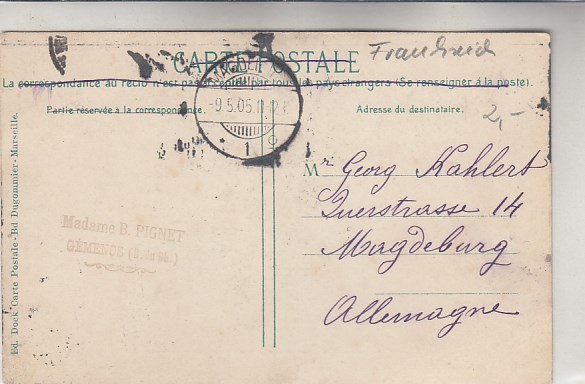 CARTE POSTALE
Frankreich
La correspondance au recto n'est pas acceptée par tous les pays étrangers (Se renseigner à la poste).
Partie réservée à la correspondance.
Adresse du destinataire.
2,-
MAGDEBURG
-9.5.05.11-12
1
Mr Georg Kahlert
Querstrasse 14
Magdeburg
Allemagne
Madame B. PIGNET
GÉMENOS
Ed. Dock Carte Postale - Bd Dugommier - Marseille.